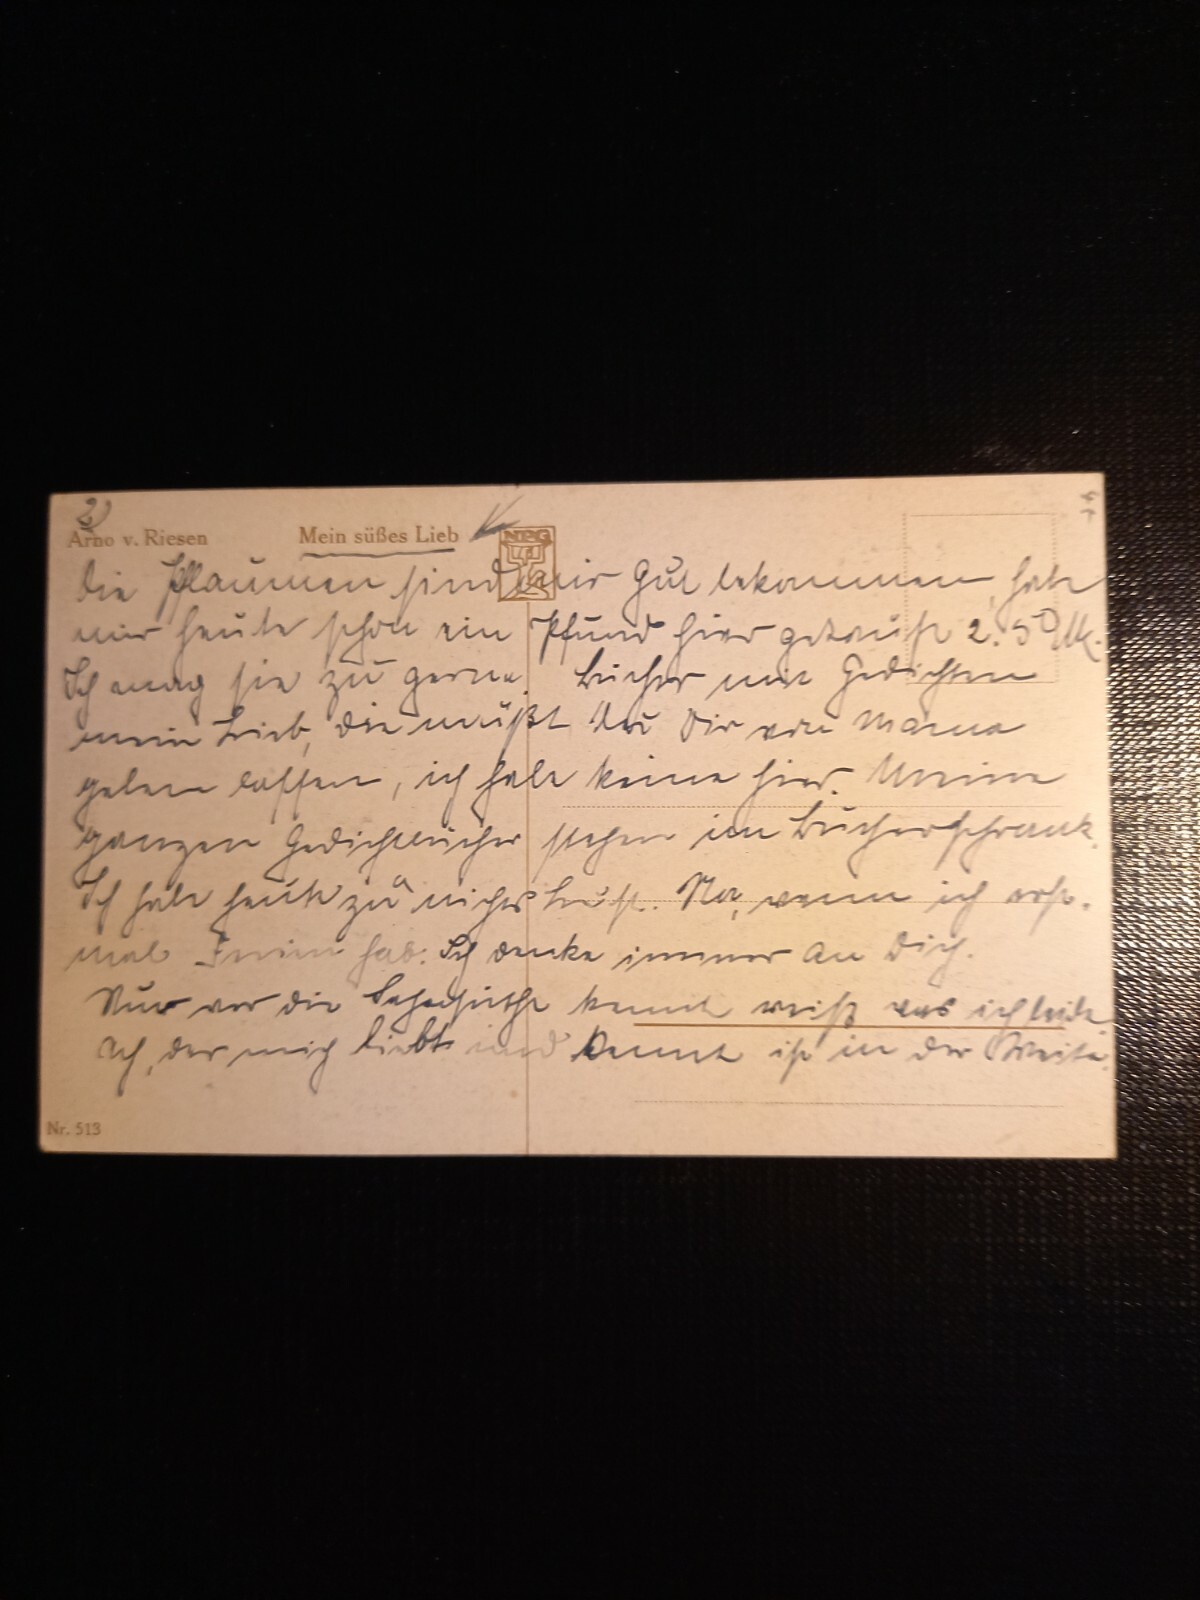 2)
Arno v. Riesen Mein süßes Lieb NPG
Die Pflaumen sind mir gut bekommen, habe
mir heute schon ein Pfund hier gekauft 2.50 M.
Ich mag sie zu gerne. Bücher mit Gedichten
mein Lieb, die mußt Du Dir von Mama
geben lassen, ich habe keine hier. Meine
ganzen Gedichtbücher stehen im Bücherschrank.
Ich habe heute zu nichts Lust. Na, wenn ich erst
mal hab. Ich denke immer an Dich.
Nur wer die Sehnsucht kennt weiß was ich leide
Ach, der mich liebt und kennt ist in der Weite.
Nr. 513